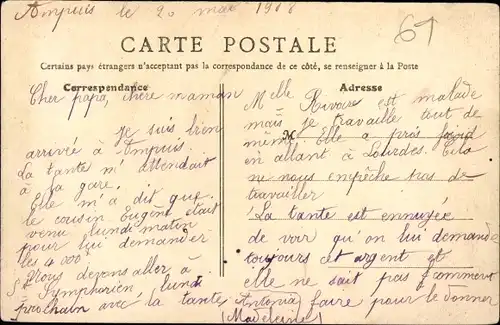 Ampuis le 20 mai 1908
61
CARTE POSTALE
Certains pays étrangers n'acceptant pas la correspondance de ce côté, se renseigner à la Poste
Correspondance
Cher papa, chère maman
Je suis bien
arrivée à Ampuis.
La tante m'attendait
à la gare.
Elle m'a dit que
le cousin Eugène était
venu lundi matin
pour lui demander
les 4 000f
Nous devons aller à
St Symphorien, lundi
prochain avec la tante Antonia
(Madeleine)
Adresse
M
Melle Rivoire est malade
mais je travaille tout de
même. Elle a pris froid
en allant à Lourdes. Cela
ne nous empêche pas de
travailler
La tante est ennuyée
de voir qu'on lui demande
toujours cet argent et
elle ne sait pas comment
faire pour le donner